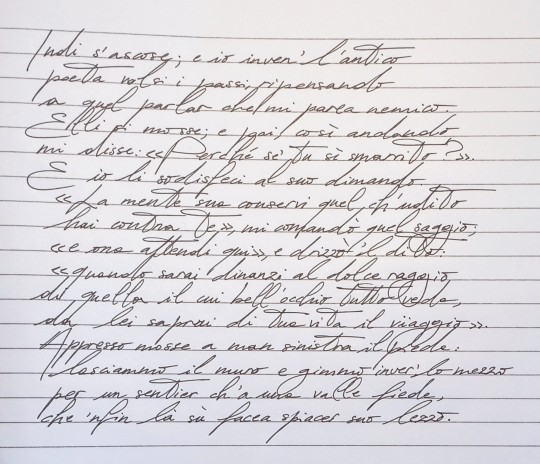 Indi s'ascose; e io inver' l'antico
poeta volsi i passi, ripensando
a quel parlar che mi parea nemico.
Elli si mosse; e poi, così andando,
mi disse: «Perché se' tu sì smarrito?».
E io li sodisfeci al suo dimando.
«La mente tua conservi quel ch'udito
hai contra te», mi comandò quel saggio;
«e ora attendi qui», e drizzò 'l dito:
«quando sarai dinanzi al dolce raggio
di quella il cui bell'occhio tutto vede,
da lei saprai di tua vita il viaggio».
Appresso mosse a man sinistra il piede:
lasciammo il muro e gimmo inver' lo mezzo
per un sentier ch'a una valle fiede,
che 'nfin là sù facea spiacer suo lezzo.